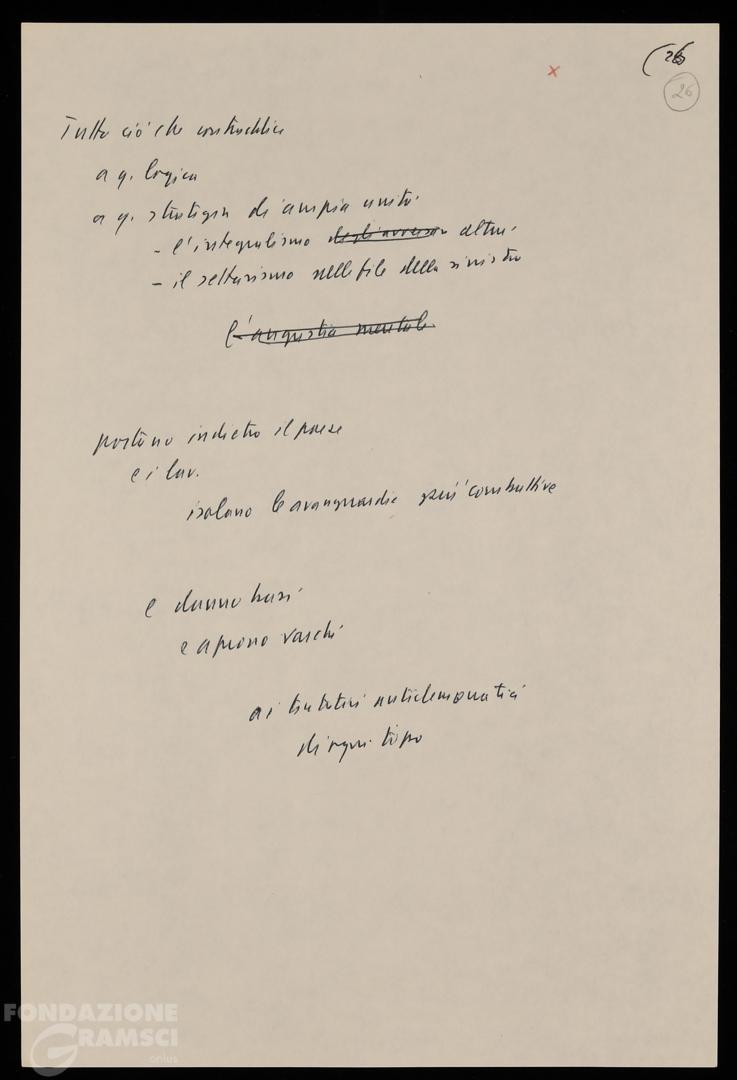 26
26
x
Tutto ciò che contraddice
a q. logica
a q. strategia di ampia unità
- l'integralismo degli avversari altrui
- il settarismo nelle file della sinistra
l'angustia mentale
portano indietro il paese
e i lav.
isolano le avanguardie più combattive
e danno basi
e aprono varchi
ai tentativi antidemocratici
di ogni tipo
FONDAZIONE
GRAMSCI
onlus